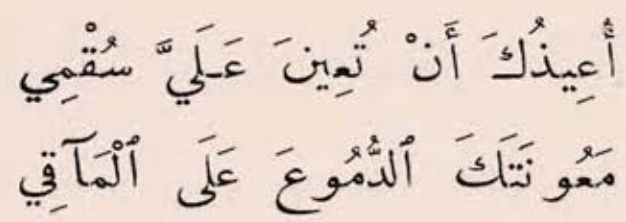 أُعِيذُكَ أَنْ تُعِينَ عَلَيَّ سُقْمِي
مَعُونَتَكَ ٱلدُّمُوعَ عَلَى ٱلْمَآقِي